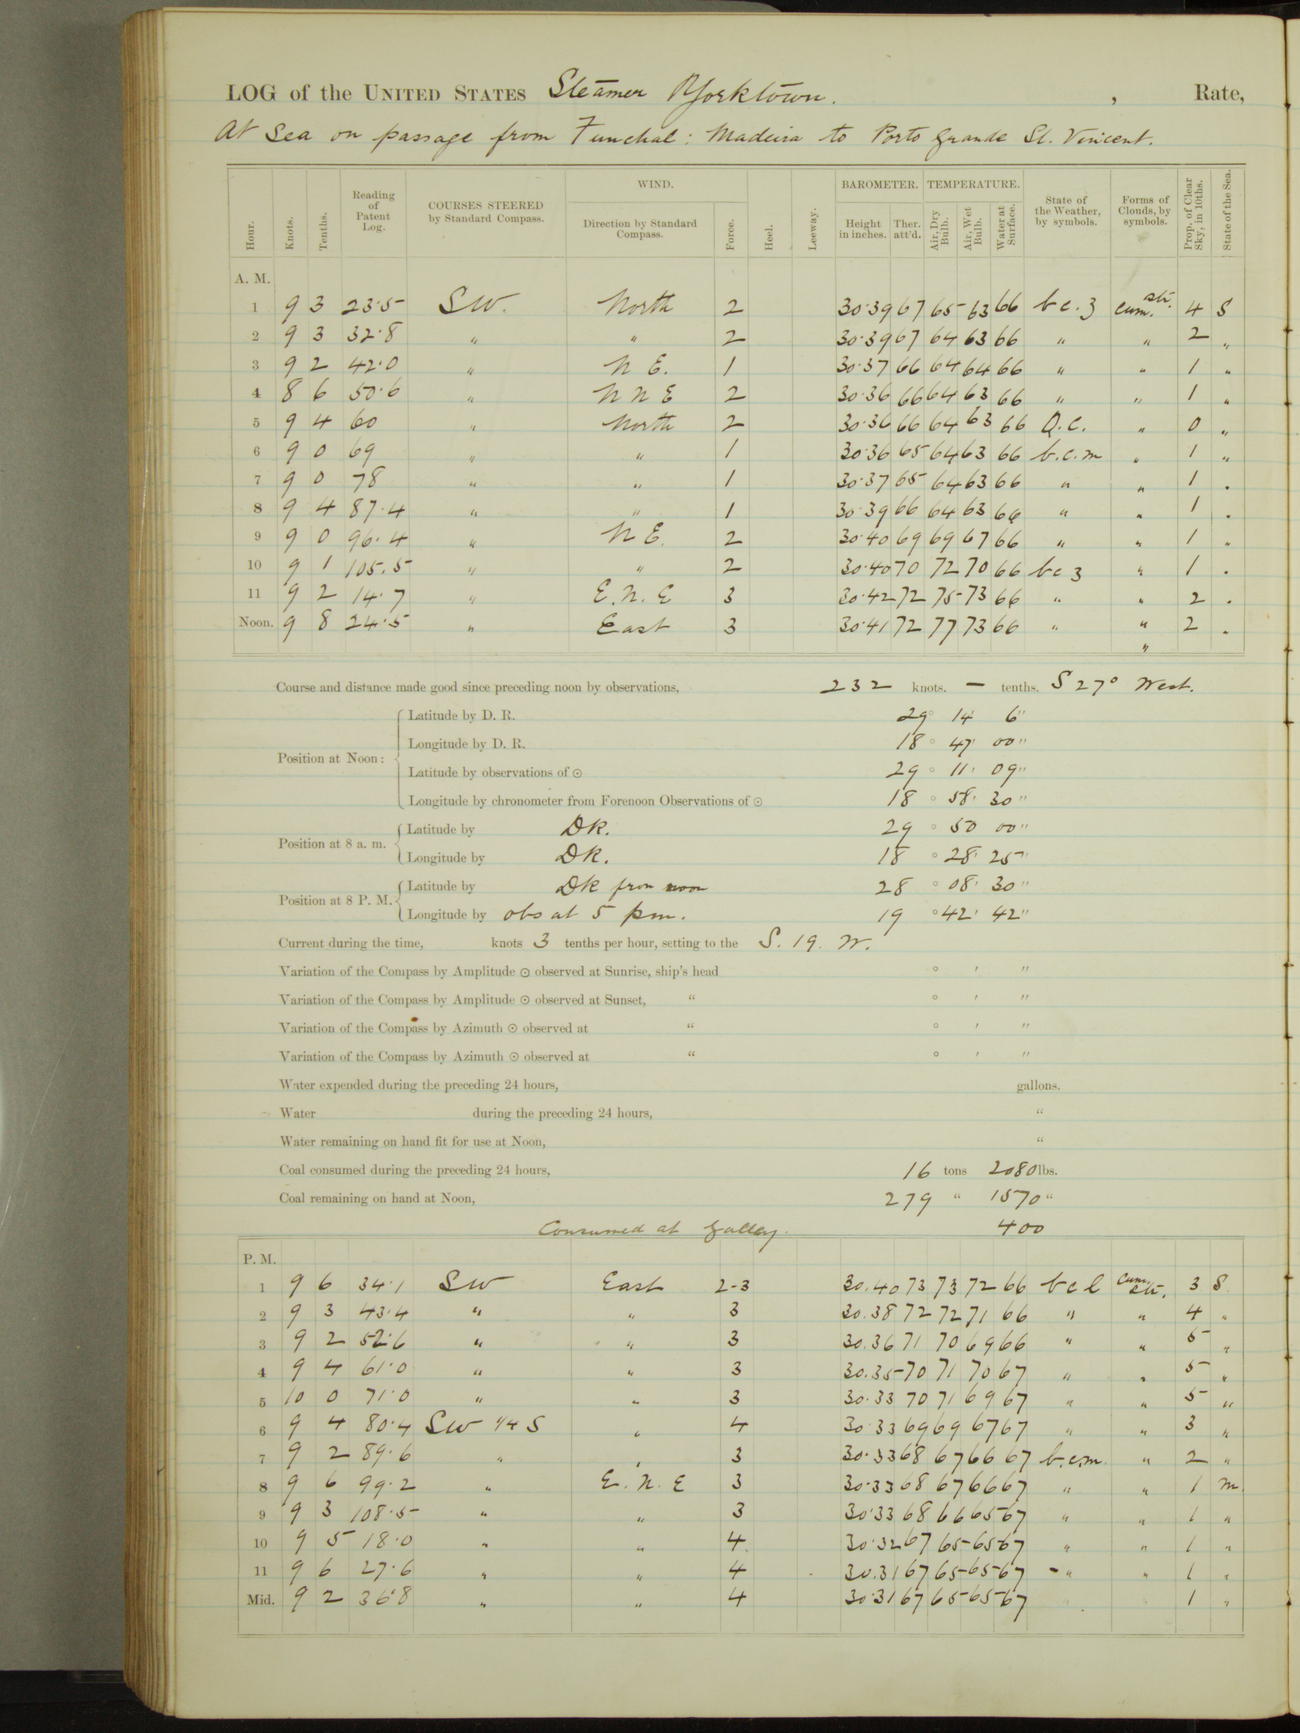 LOG of the UNITED STATES Steamer Yorktown. , Rate,
At Sea on passage from Funchal: Madeira to Porto Grande St. Vincent.
Hour. Knots. Tenths. Reading of Patent Log. COURSES STEERED by Standard Compass. WIND. Direction by Standard Compass. Force. Heel. Leeway. BAROMETER. Height in inches. Ther. att'd. TEMPERATURE. Air, Dry Bulb. Air, Wet Bulb. Water at Surface. State of the Weather, by symbols. Forms of Clouds, by symbols. Prop. of Clear Sky, in 10ths. State of the Sea.
A. M.
1 9 3 23.5 SW. North 2 30.39 67 65 63 66 b c. z cum. str. 4 S
2 9 3 32.8 " " 2 30.39 67 64 63 66 " " 2 "
3 9 2 42.0 " N E. 1 30.37 66 64 64 66 " " 1 "
4 8 6 50.6 " N N E 2 30.36 66 64 63 66 " " 1 "
5 9 4 60 " North 2 30.36 66 64 63 66 O.C. " 0 "
6 9 0 69 " " 1 30.36 65 64 63 66 b.c.m " 1 "
7 9 0 78 " " 1 30.37 65 64 63 66 " " 1 "
8 9 4 87.4 " " 1 30.39 66 64 63 66 " " 1 "
9 9 0 96.4 " N E. 2 30.40 69 69 67 66 " " 1 "
10 9 1 105.5 " " 2 30.40 70 72 70 66 b c z " 1 "
11 9 2 14.7 " E. N. E 3 30.42 72 75 73 66 " " 2 "
Noon. 9 8 24.5 " East 3 30.41 72 77 73 66 " " 2 "
"
Course and distance made good since preceding noon by observations, 232 knots. — tenths. S 27° West.
Position at Noon: Latitude by D. R. 29° 14' 6"
Longitude by D. R. 18° 47' 00"
Latitude by observations of ☉ 29° 11' 09"
Longitude by chronometer from Forenoon Observations of ☉ 18° 58' 30"
Position at 8 a. m. Latitude by DR. 29° 50 00"
Longitude by DR. 18° 28' 25"
Position at 8 P. M. Latitude by DR from noon 28° 08' 30"
Longitude by obs at 5 pm. 19° 42' 42"
Current during the time, knots 3 tenths per hour, setting to the S. 19. W.
Variation of the Compass by Amplitude ☉ observed at Sunrise, ship's head ° ' "
Variation of the Compass by Amplitude ☉ observed at Sunset, " ° ' "
Variation of the Compass by Azimuth ☉ observed at " ° ' "
Variation of the Compass by Azimuth ☉ observed at " ° ' "
Water expended during the preceding 24 hours, gallons.
Water during the preceding 24 hours, "
Water remaining on hand fit for use at Noon, "
Coal consumed during the preceding 24 hours, 16 tons 2080 lbs.
Coal remaining on hand at Noon, 279 " 1570 "
Consumed at Galley. 400
P. M.
1 9 6 34.1 SW East 2-3 30.40 73 73 72 66 b c l cum. str. 3 S
2 9 3 43.4 " " 3 30.38 72 72 71 66 " " 4 "
3 9 2 52.6 " " 3 30.36 71 70 69 66 " " 5 "
4 9 4 61.0 " " 3 30.35 70 71 70 67 " " 5 "
5 10 0 71.0 " " 3 30.33 70 71 69 67 " " 5 "
6 9 4 80.4 SW 1/4 S " 4 30.33 69 69 67 67 " " 3 "
7 9 2 89.6 " " 3 30.33 68 67 66 67 b.c.m. " 2 "
8 9 6 99.2 " E. N. E 3 30.33 68 67 66 67 " " 1 m
9 9 3 108.5 " " 3 30.33 68 66 65 67 " " 1 "
10 9 5 18.0 " " 4 30.32 67 65 65 67 " " 1 "
11 9 6 27.6 " " 4 30.31 67 65 65 67 " " 1 "
Mid. 9 2 36.8 " " 4 30.31 67 65 65 67 1 "